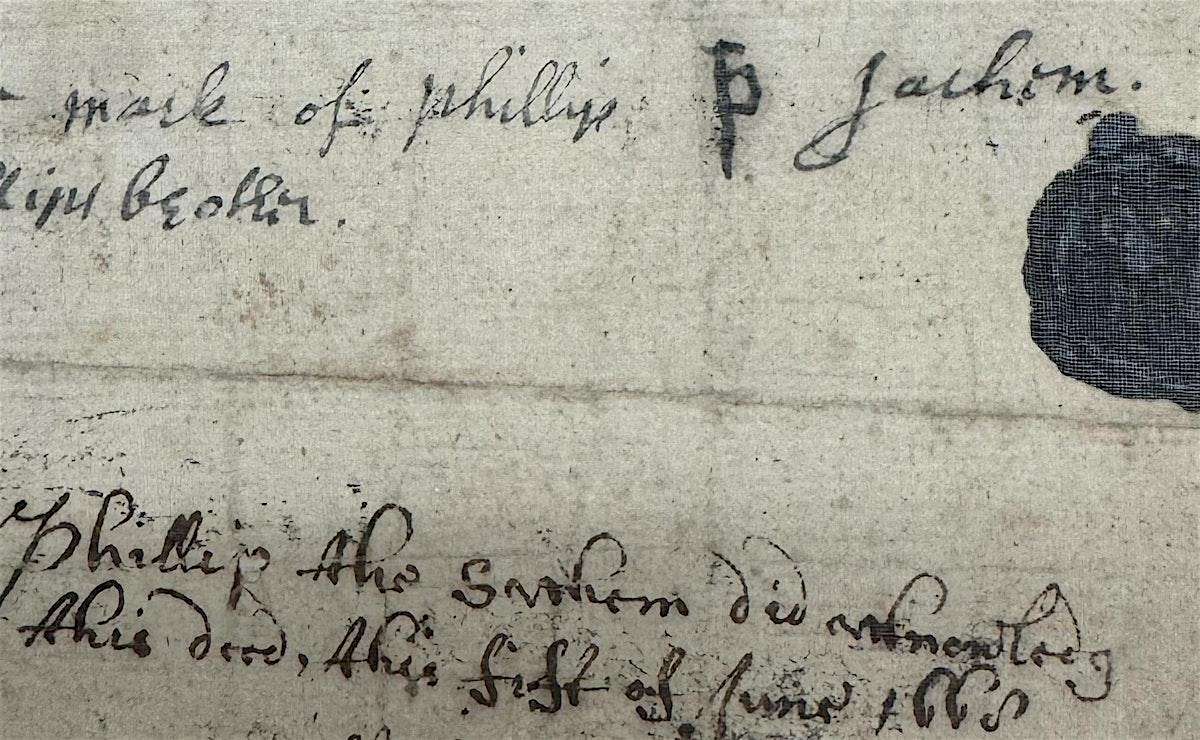 mark of phillip P Sachem.
llips brother.
Phillip the Sachem did acknowledg
this deed, this fift of June 1668